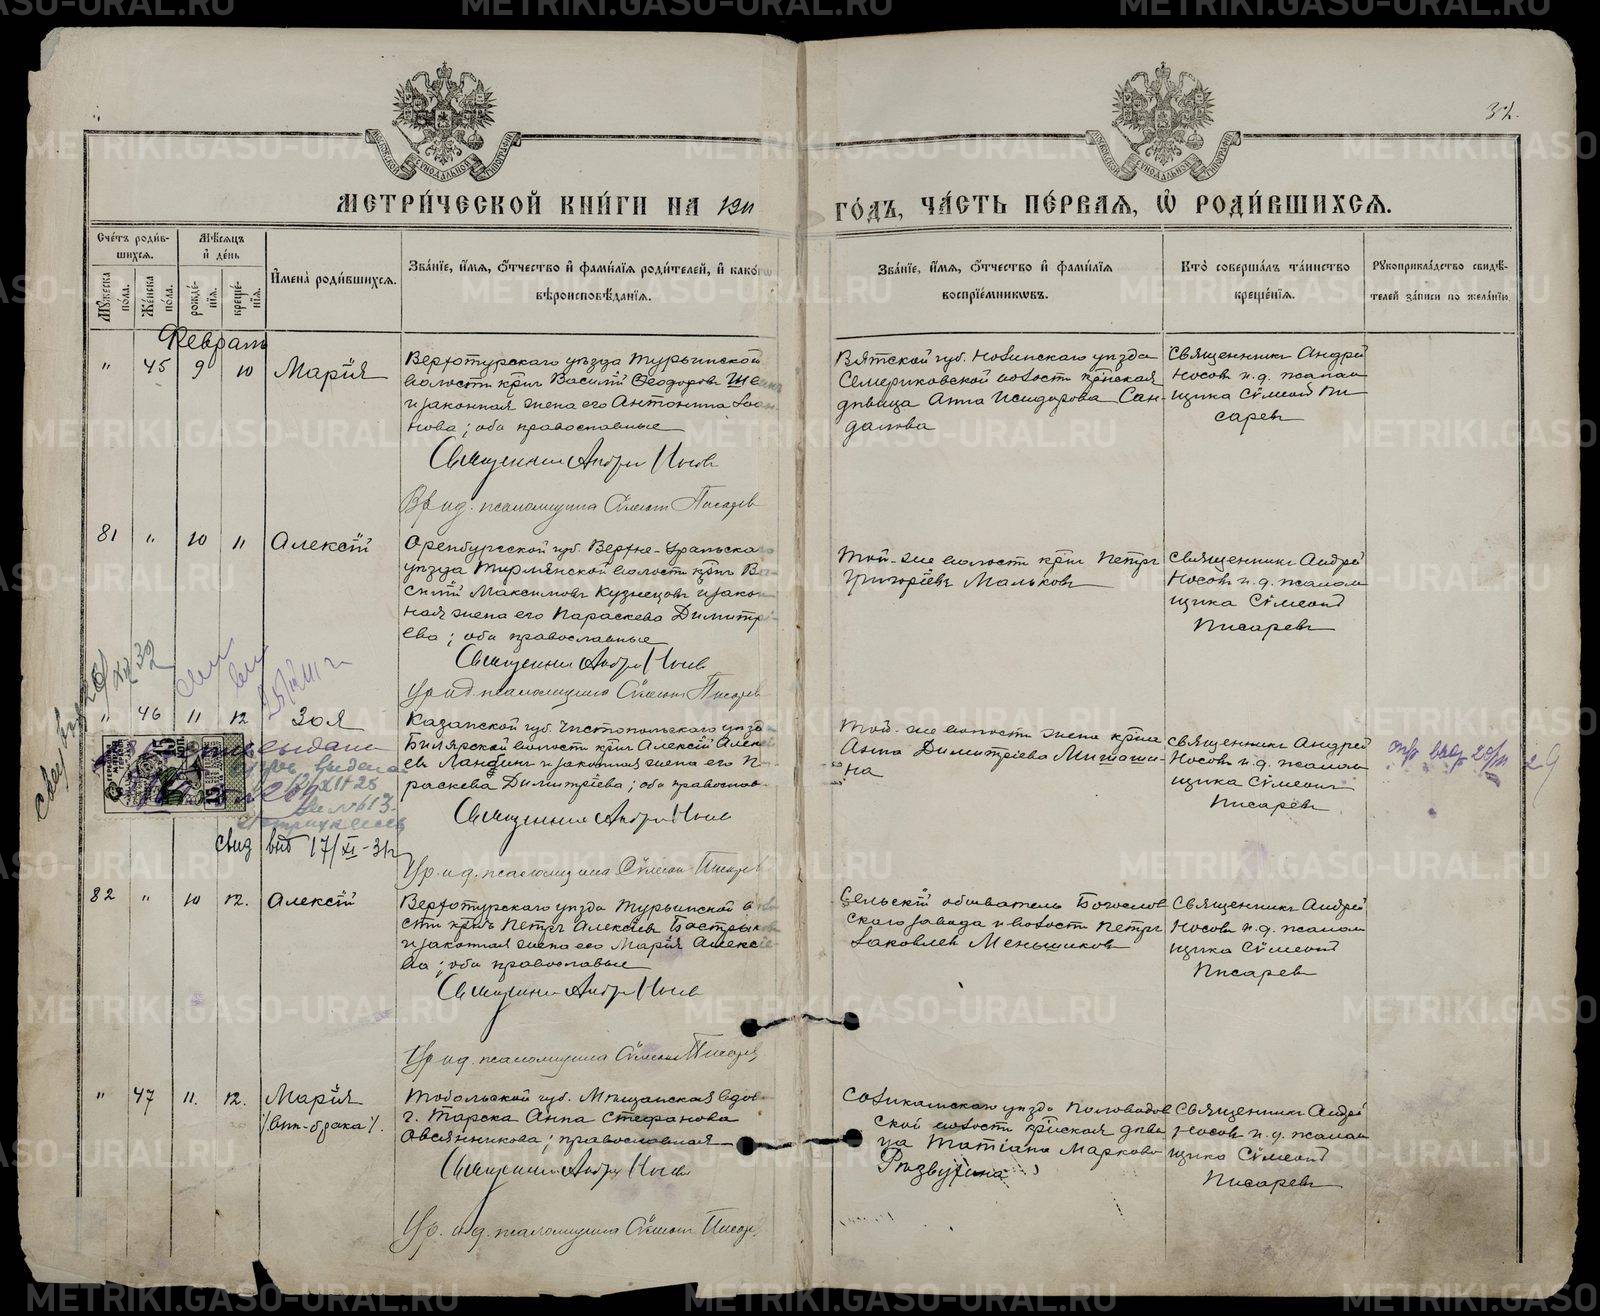 32.
МЕТРИ́ЧЕСКОЙ КНИ́ГИ НА 1911
ГО́ДЪ, ЧА́СТЬ ПЕ́РВАѦ, Ѡ҆ РОДИ́ВШИХСѦ.
Сче́тъ роди́вшихсѧ.
Мѣ́сѧцъ и҆ де́нь
И҆мена̀ роди́вшихсѧ.
Зва́нїе, и҆́мѧ, ѻ҆́тчество и҆ фами́лїѧ роди́телей, и҆ како́гѡ
вѣроисповѣ́данїѧ.
Зва́нїе, и҆́мѧ, ѻ҆́тчество и҆ фами́лїѧ
воспрїе́мникѡвъ.
Кто̀ соверша́лъ та́инство
креще́нїѧ.
Рꙋкоприкла́дство свидѣ́-
телей за́писи по жела́нїю.
Мꙋ́жеска по́ла.
Же́нска по́ла.
рожде́-
нїѧ.
креще́-
нїѧ.
Февраль
" 45 9 10 Марія
Верхотурскаго уѣзда Турьинской
волости кр҃нъ Василій Ѳеодоровъ
и законная жена его Антонина Іоан
нова; оба православные
Священникъ Андрей Носовъ
Вр. и.д. псаломщика Сѵмеонъ Писаревъ
Вятской губ. Нолинскаго уѣзда
Семериковской волости кр҃нская
дѣвица Анна Исидорова Сан-
далова
Священникъ Андрей
Носовъ и.д. псалом
щика Сѵмеонъ Пи
саревъ
81 " 10 11 Алексій
Оренбургской губ. Верхне-Уральскаго
уѣзда Тирлянской волости кр҃нъ Ва-
силій Максимовъ Кузнецовъ и закон
ная жена его Параскева Димитрі-
ева; оба православные
Священникъ Андрей Носовъ
Вр. и.д. псаломщика Сѵмеонъ Писаревъ
Той-же волости кр҃нъ Петръ
Григоріевъ Мальковъ
Священникъ Андрей
Носовъ и.д. псалом
щика Сѵмеонъ
Писаревъ
" 46 11 12 Зоя
Казанской губ. Чистопольскаго уѣзда
Билярской волости кр҃нъ Алексій Алексѣ
евъ Ландинъ и законная жена его Па-
раскева Димитріева; оба православ-
Священникъ Андрей Носовъ
Вр. и.д. псаломщика Сѵмеонъ Писаревъ
Той-же волости жена кр҃на
Анна Димитріева Мишаши-
на
Священникъ Андрей
Носовъ и.д. псалом
щика Сѵмеонъ
Писаревъ
выдана
выдана
12/XII 25
за № 613
15
свид выд 17/XI-31г
82 " 10 12. Алексій
Верхотурскаго уѣзда Турьинской воло
сти кр҃нъ Петръ Алексіевъ Бастрыковъ
и законная жена его Марія Алексіе
ва; оба православные
Священникъ Андрей Носовъ
Вр. и.д. псаломщика Сѵмеонъ Писаревъ
Сельскій обыватель Богослов
скаго завода и волости Петръ
Іаковлевъ Меньшиковъ
Священникъ Андрей
Носовъ и.д. псалом
щика Сѵмеонъ
Писаревъ
" 47 11. 12. Марія
/внѣ-брака/.
Тобольской губ. Мѣщанская вдова
г. Тарска Анна Стефанова
Овсянникова; православная
Священникъ Андрей Носовъ
Вр. и.д. псаломщика Сѵмеонъ Писаревъ
Соликамскаго уѣзда Половодов
ской волости кр҃нская дѣви
ца Татіана Маркова
Священникъ Андрей
Носовъ и.д. псалом
щика Сѵмеонъ
Писаревъ
METRIKI.GASO-URAL.RU